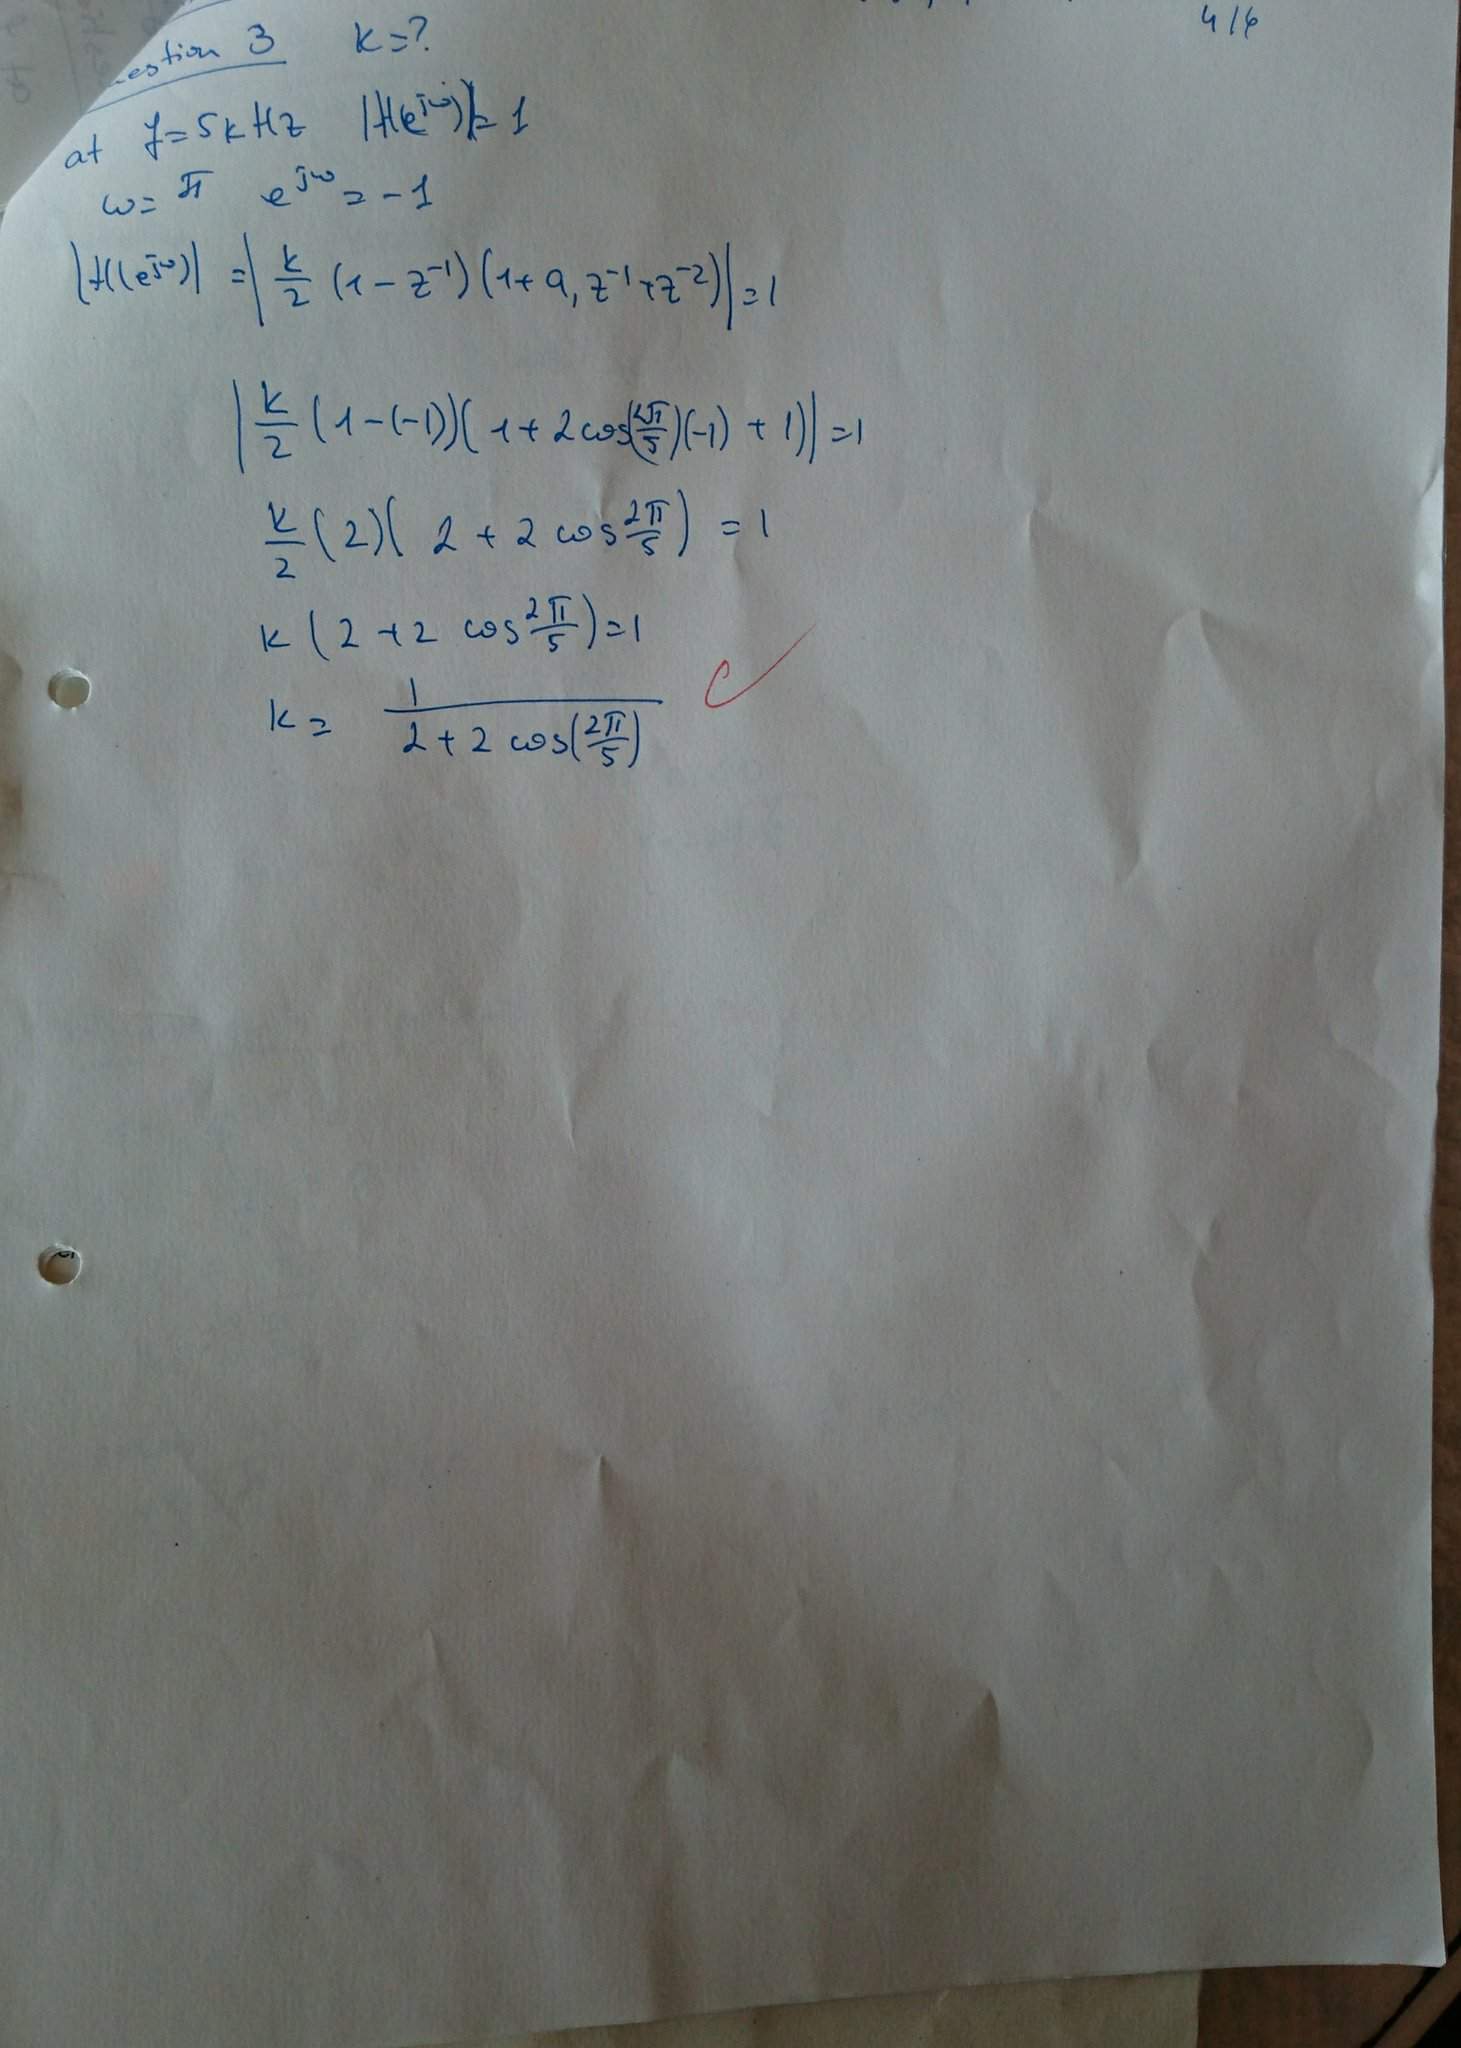 4/6
estion 3 K=?
at f=5kHz |H(e^jω)|=1
ω=π e^jω=-1
|H(e^jω)| = |K/2 (1-z^-1)(1+a, z^-1+z^-2)|=1
|K/2 (1-(-1))(1+2cos(2π/5)(-1)+1)|=1
K/2 (2)(2+2 cos 2π/5) =1
K(2+2 cos 2π/5)=1
K= 1/(2+2 cos(2π/5))